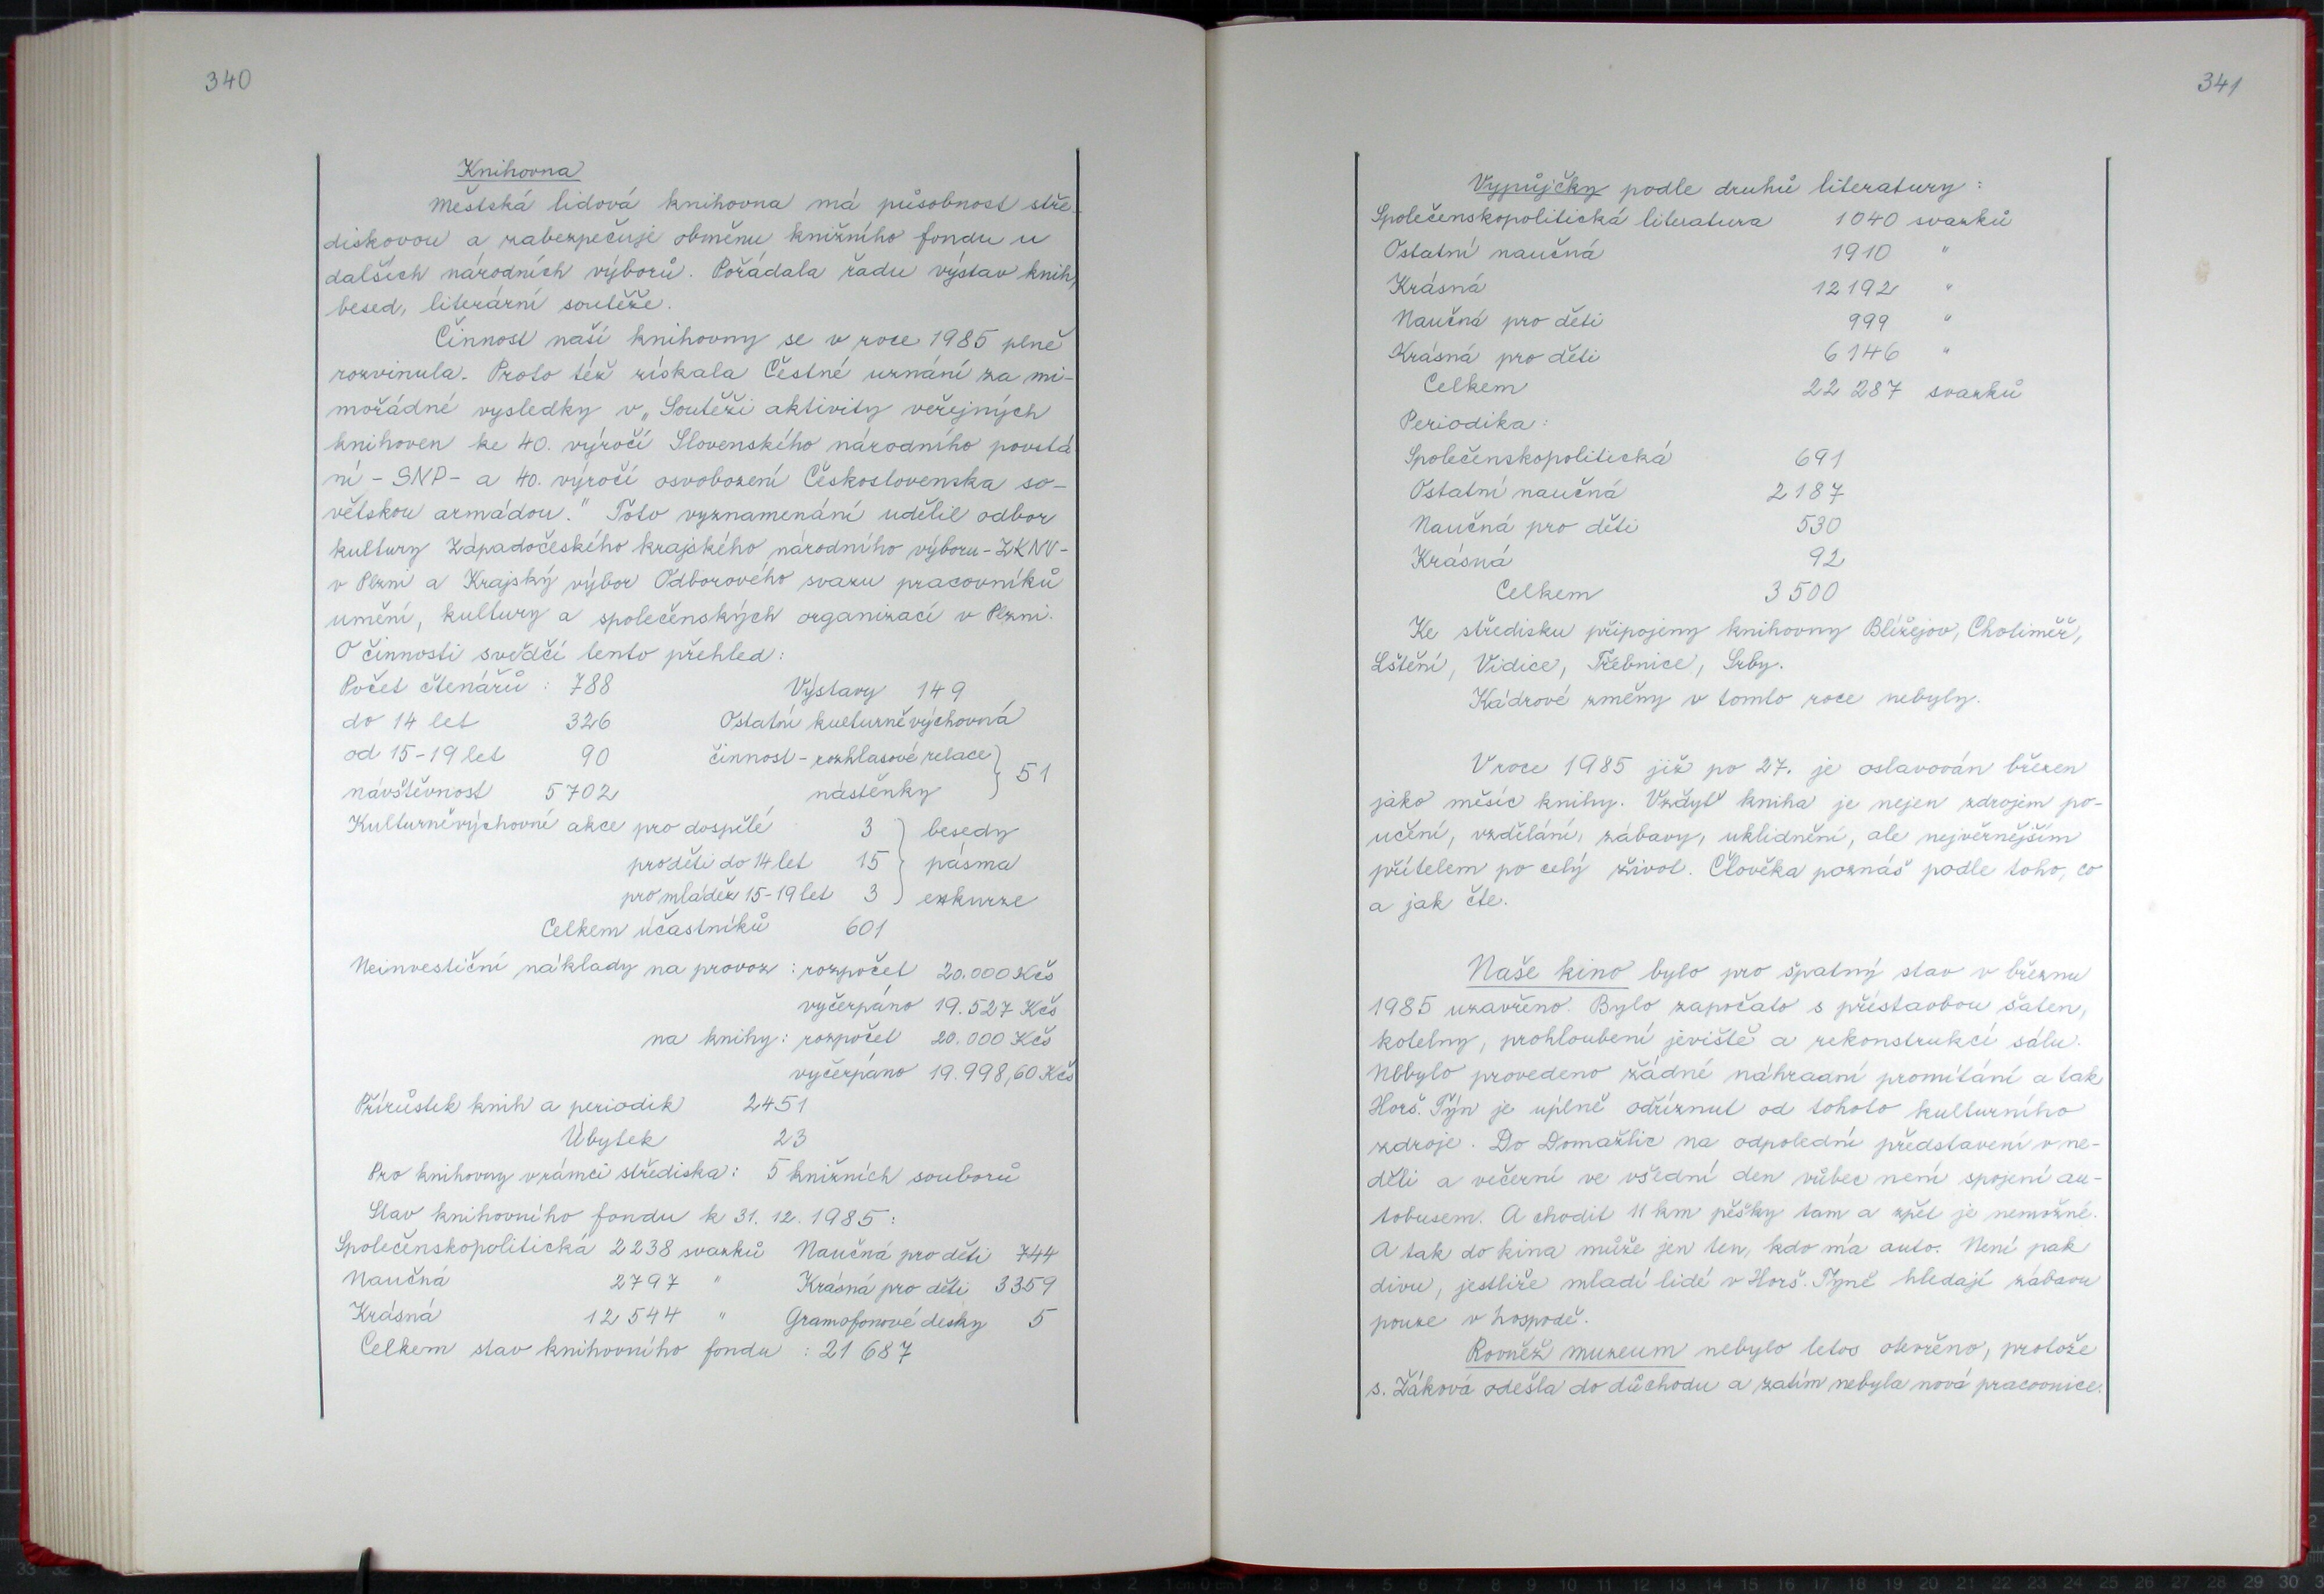 340
Knihovna
Městská lidová knihovna má působnost stře-
diskovou a zabezpečuje obměnu knižního fondu u
dalších národních výborů. Pořádala řadu výstav knih,
besed, literární soutěže.
Činnost naší knihovny se v roce 1985 plně
rozvinula. Proto též získala Čestné uznání za mi-
mořádné vysledky v „Soutěži aktivity veřejných
knihoven ke 40. výročí Slovenského národního povstá
ní - SNP - a 40. výročí osvobození Československa so-
větskou armádou." Toto vyznamenání udělil odbor
kultury Západočeského krajského národního výboru - ZKNV -
v Plzni a Krajský výbor Odborového svazu pracovníků
umění, kultury a společenských organizací v Plzni.
O činnosti svědčí tento přehled:
Počet čtenářů : 788 Výstavy 149
do 14 let 326 Ostatní kulturněvýchovná
od 15-19 let 90 činnost - rozhlasové relace } 51
návštěvnost 5702 nástěnky
Kulturněvýchovné akce pro dospělé 3 } besedy
pro děti do 14 let 15 pásma
pro mládež 15-19 let 3 exkurze
Celkem účastníků 601
Neinvestiční náklady na provoz : rozpočet 20.000 Kčs
vyčerpáno 19.527 Kčs
na knihy : rozpočet 20.000 Kčs
vyčerpáno 19.998,60 Kčs
Přírůstek knih a periodik 2451
Úbytek 23
Pro knihovny v rámci střediska : 5 knižních souborů
Stav knihovního fondu k 31. 12. 1985 :
Společenskopolitická 2238 svazků Naučná pro děti 744
Naučná 2797 " Krásná pro děti 3359
Krásná 12 544 " Gramofonové desky 5
Celkem stav knihovního fondu : 21 687
341
Vypůjčky podle druhů literatury :
Společenskopolitická literatura 1040 svazků
Ostatní naučná 1910 "
Krásná 12192 "
Naučná pro děti 999 "
Krásná pro děti 6146 "
Celkem 22 287 svazků
Periodika :
Společenskopolitická 691
Ostatní naučná 2187
Naučná pro děti 530
Krásná 92
Celkem 3 500
Ke středisku připojeny knihovny Blížejov, Chotiměř,
Lštění, Vidice, Třebnice, Srby.
Kádrové změny v tomto roce nebyly.
V roce 1985 již po 27. je oslavován březen
jako měsíc knihy. Vždyť kniha je nejen zdrojem po-
učení, vzdělání, zábavy, uklidnění, ale nejvěrnějším
přítelem po celý život. Člověka poznáš podle toho, co
a jak čte.
Naše kino bylo pro špatný stav v březnu
1985 uzavřeno. Bylo započato s přístavbou šaten,
kotelny, prohloubení jeviště a rekonstrukcí sálu.
Nebylo provedeno žádné náhradní promítání a tak
Horš. Týn je úplně odříznut od tohoto kulturního
zdroje. Do Domažlic na odpolední představení v ne-
děli a večerní ve všední den vůbec není spojení au-
tobusem. A chodit 11 km pěšky tam a zpět je nemožné.
A tak do kina může jen ten, kdo má auto. Není pak
divu, jestliže mladí lidé v Horš. Týně hledají zábavu
pouze v hospodě.
Rovněž muzeum nebylo letos otevřeno, protože
s. Žáková odešla do důchodu a zatím nebyla nová pracovnice.